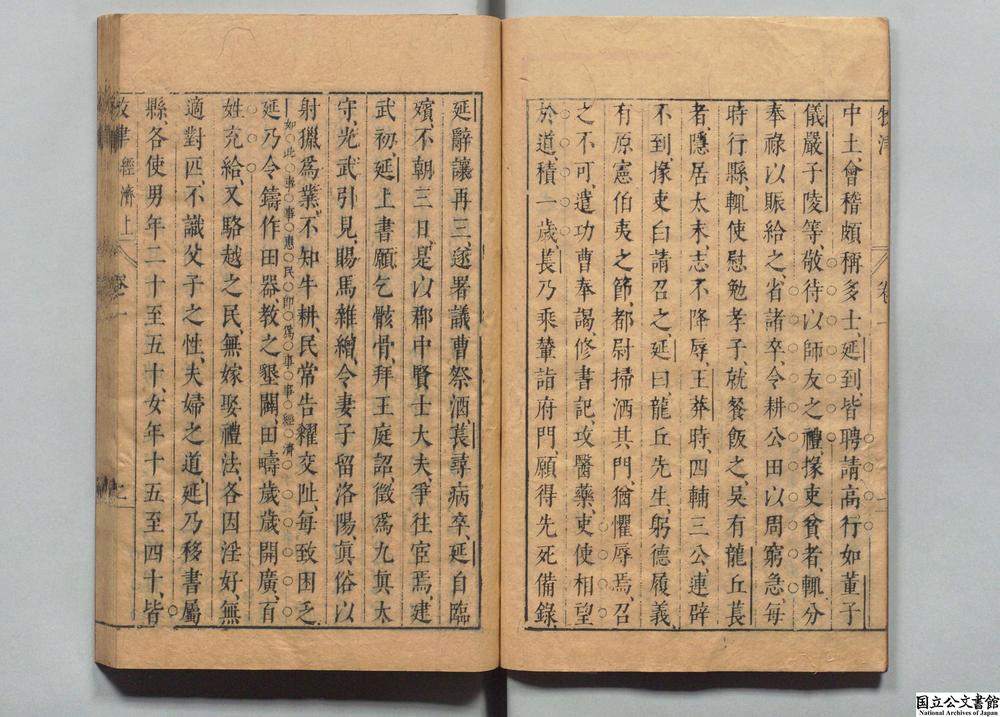 牧津 卷一
中土、會稽頗稱多士、延到、皆聘請高行如董子
儀嚴子陵等、敬待以師友之禮、掾吏貧者、輒分
奉祿以賑給之、省諸卒、令耕公田、以周窮急、每
時行縣、輒使慰勉孝子、就餐飯之、吳有龍丘萇
者、隱居太末、志不降辱、王莽時、四輔三公、連辟
不到、掾吏白請召之、延曰、龍丘先生、躬德履義、
有原憲伯夷之節、都尉掃洒其門、猶懼辱焉、召
之不可、遣功曹奉謁、修書記、攻醫藥、吏使相望
於道、積一歲、萇乃乘輦詣府門、願得先死備錄、
延辭讓再三、遂署議曹祭酒、萇尋病卒、延自臨
殯、不朝三日、是以郡中賢士大夫、爭往宦焉、建
武初、延上書、願乞骸骨、拜王庭、詔徵爲九眞太
守、光武引見、賜馬雜繒、令妻子留洛陽、眞俗以
射獵爲業、不知牛耕、民常告糴交阯、每致困乏、
如此事事惠民卽爲事事經濟
延乃令鑄作田器、敎之墾闢、田疇歲歲開廣、百
姓充給、又駱越之民、無嫁娶禮法、各因淫好、無
適對匹、不識父子之性、夫婦之道、延乃移書屬
縣、各使男年二十至五十、女年十五至四十、皆
牧津 經濟上 卷一
国立公文書館
National Archives of Japan